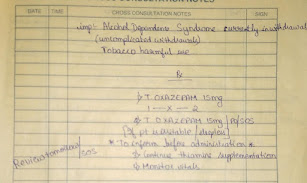 CROSS CONSULTATION NOTES
DATE TIME CROSS CONSULTATION NOTES SIGN
imp:- Alcohol Dependence Syndrome currently in withdrawal
(uncomplicated withdrawals)
Tobacco harmful use
Rx
1) T OXAZEPAM 15mg
1 — X — 2
2) T OXAZEPAM 15mg / PO/SOS
[If pt is irritable /
* To inform before administration *
3) Continue thiamine supplementation
4) Monitor vitals
Review tomorrow/
SOS